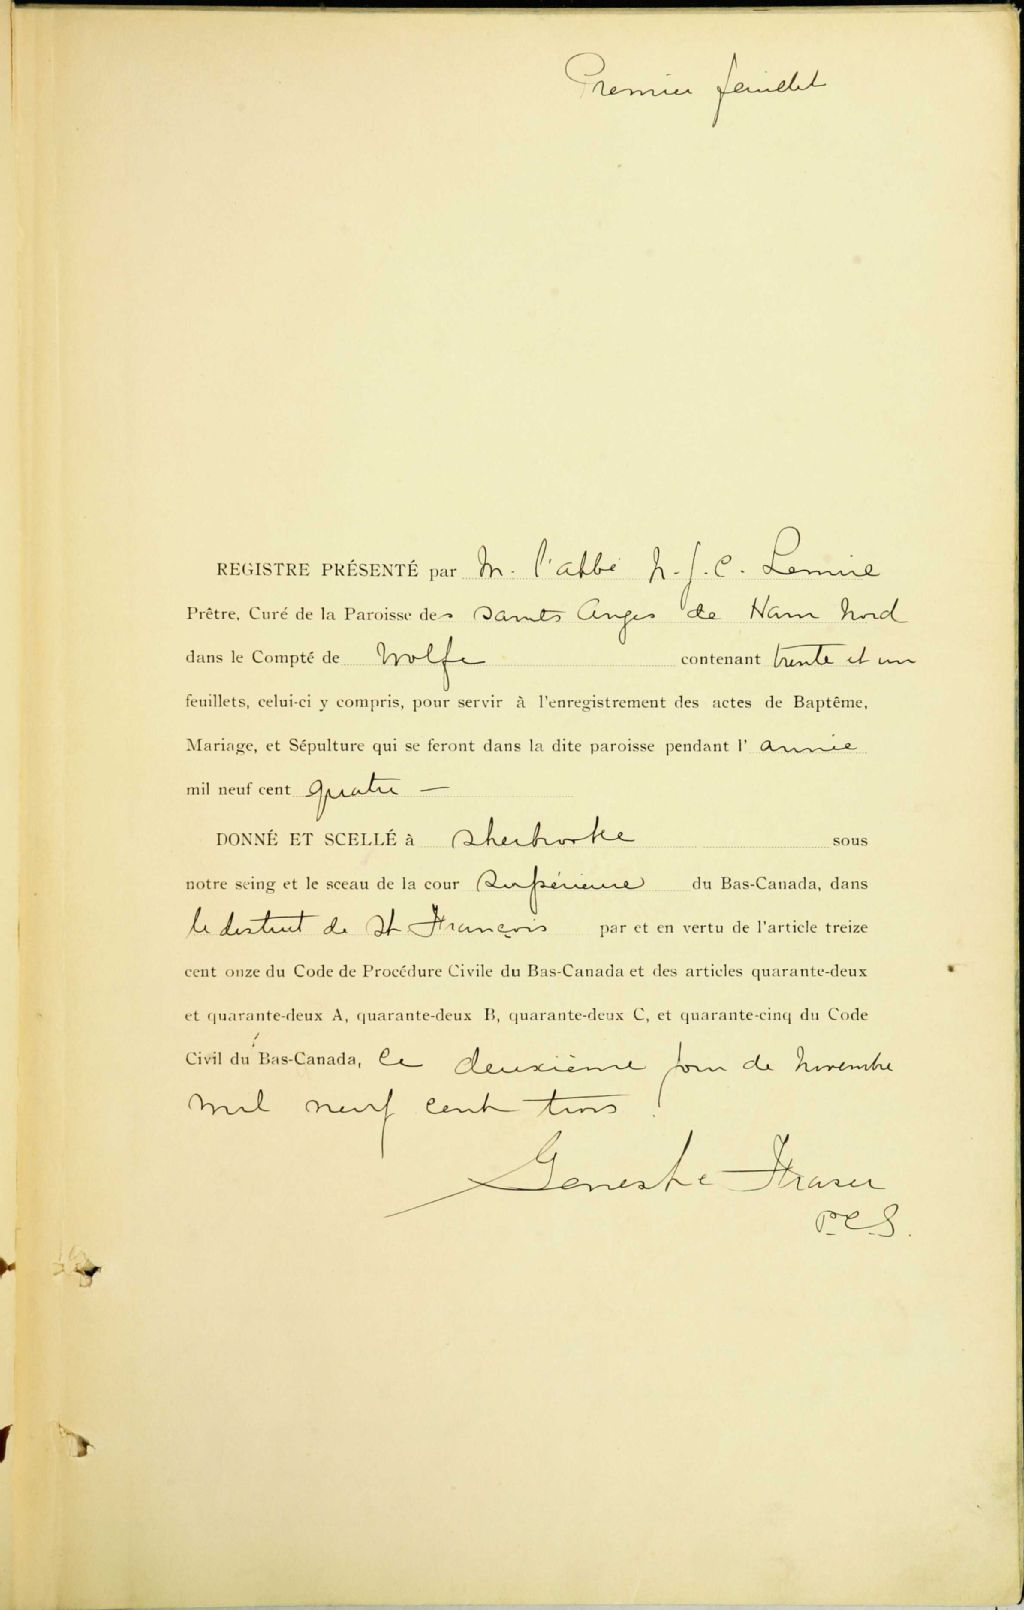 Premier feuillet
REGISTRE PRÉSENTÉ par M. l'abbé N. J. C. Lemire
Prêtre, Curé de la Paroisse des Saints Anges de Ham Nord
dans le Compté de Wolfe contenant trente et un
feuillets, celui-ci y compris, pour servir à l'enregistrement des actes de Baptême,
Mariage, et Sépulture qui se feront dans la dite paroisse pendant l'année
mil neuf cent quatre —
DONNÉ ET SCELLÉ à Sherbrooke sous
notre seing et le sceau de la cour Supérieure du Bas-Canada, dans
le district de St François par et en vertu de l'article treize
cent onze du Code de Procédure Civile du Bas-Canada et des articles quarante-deux
et quarante-deux A, quarante-deux B, quarante-deux C, et quarante-cinq du Code
Civil du Bas-Canada, ce deuxième jour de novembre
mil neuf cent trois.
Geneste Fraser
P.C.S.